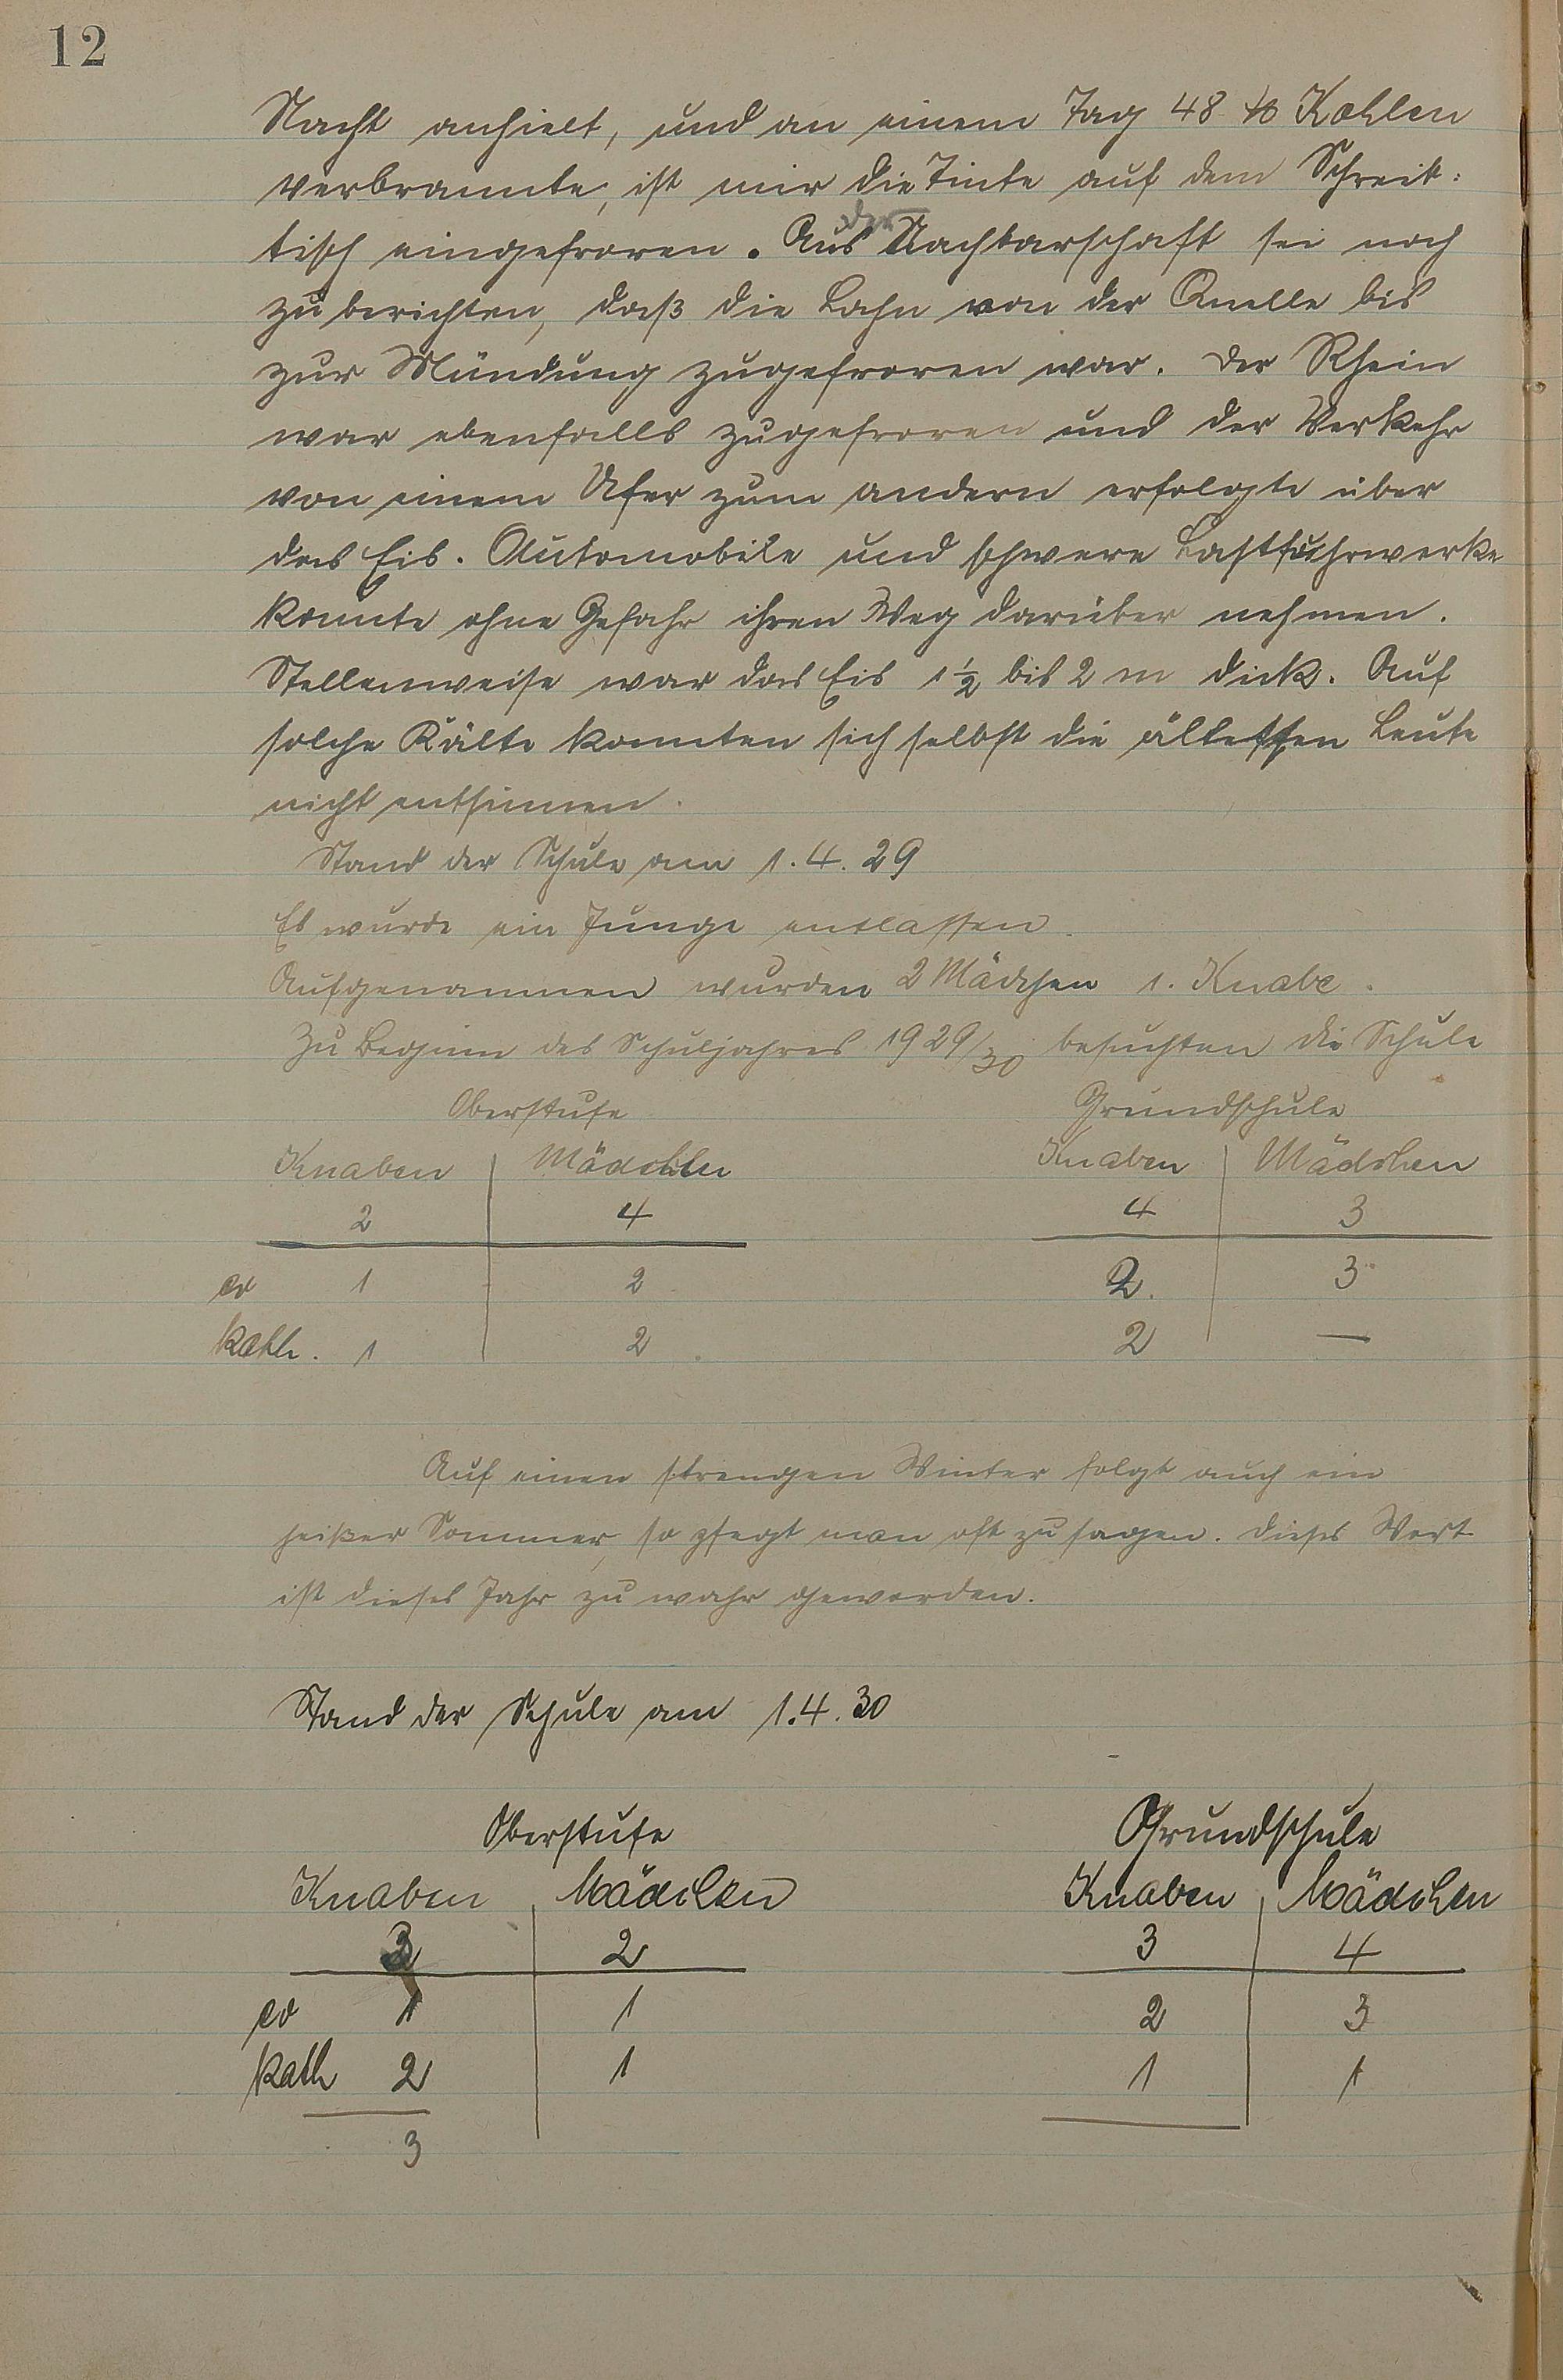 12
Nacht anhielt, und an einem Tag 48 ℔ Kohlen
verbrannte, ist mir die Tinte auf dem Schreib-
tisch eingefroren. Aus der Nachbarschaft sei noch
zu berichten, daß die Lahn von der Quelle bis
zur Mündung zugefroren war. Der Rhein
war ebenfalls zugefroren und der Verkehr
von einem Ufer zum andern erfolgte über
das Eis. Automobile und schwere Lastfuhrwerke
konnte ohne Gefahr ihren Weg darüber nehmen.
Stellenweise war das Eis 1½ bis 2 m dick. Auf
solche Kälte konnten sich selbst die ältesten Leute
nicht entsinnen.
Stand der Schule am 1.4.29
Es wurde ein Junge entlassen.
Aufgenommen wurden 2 Mädchen 1. Knabe.
Zu Beginn des Schuljahres 1929/30 besuchten die Schule
Oberstufe Grundschule
Knaben Mädchen Knaben Mädchen
2 4 4 3
ev 1 2 2. 3
kath. 1 2 2 —
Auf einen strengen Winter folgt auch ein
heißer Sommer, so pflegt man oft zu sagen. Dieses Wort
ist dieses Jahr zu wahr geworden.
Stand der Schule am 1.4.30
Oberstufe Grundschule
Knaben Mädchen Knaben Mädchen
3 2 3 4
ev 1 1 2 3
kath 2 1 1 1
3